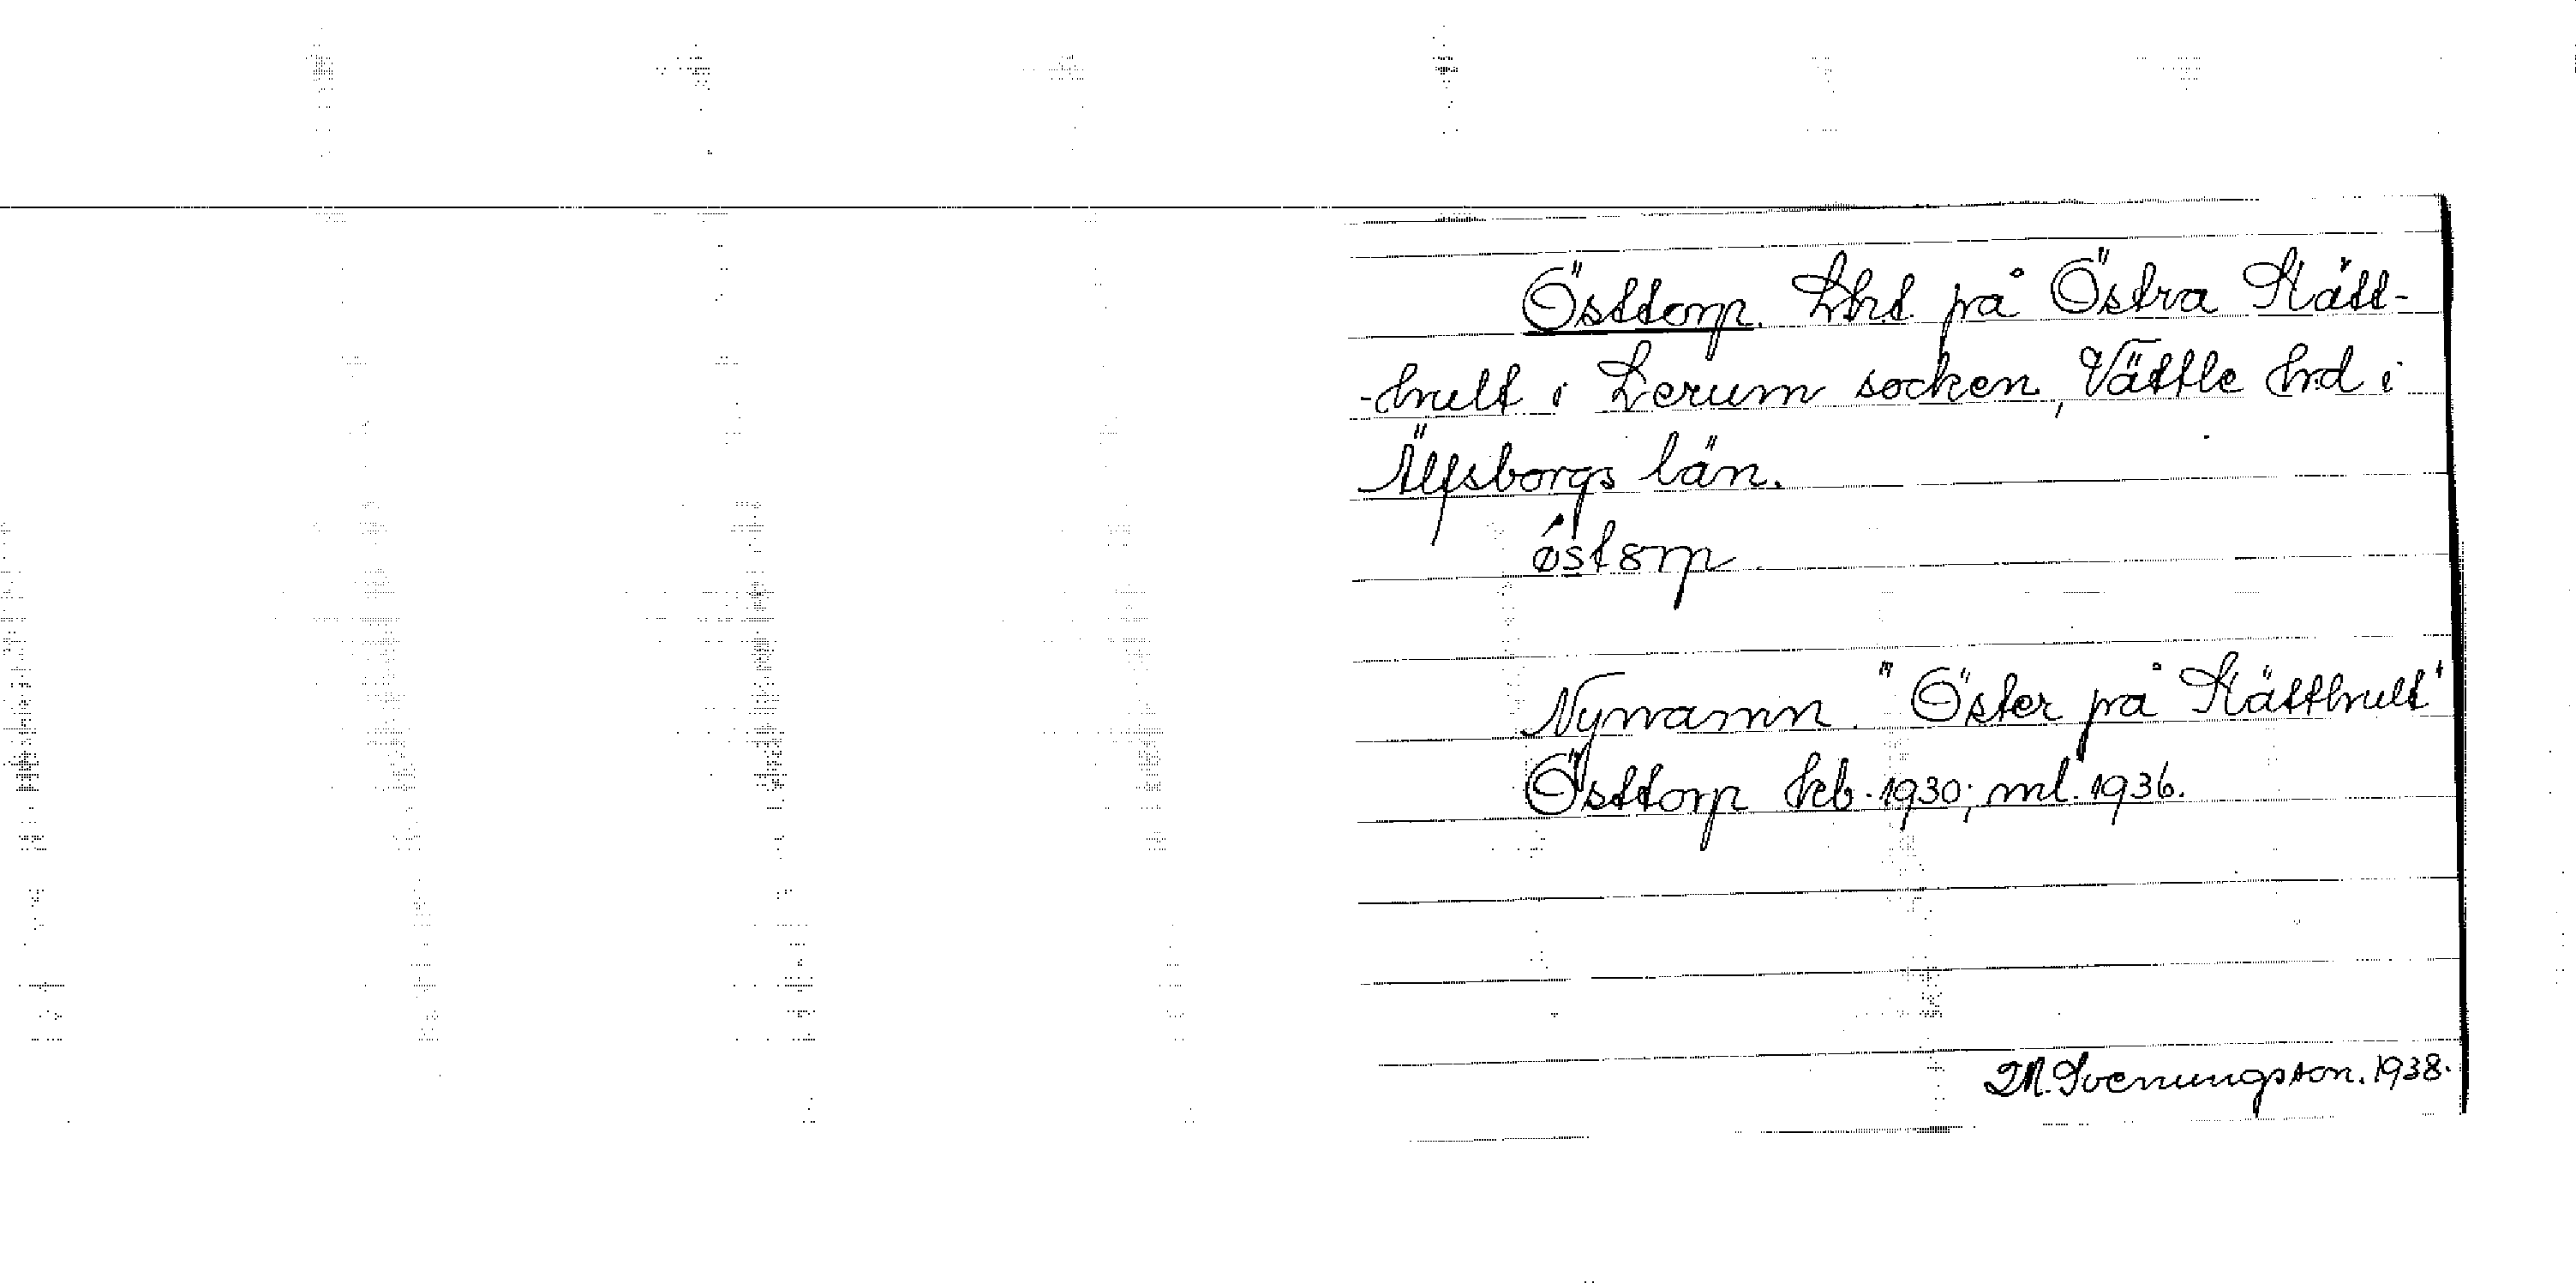 Östtorp. Lht. på Östra Stätt-
-hult i Lerum socken, Vättle hrd i
Älfsborgs län.
Nynamn. "Öster på Stätthult"
Östtorp kb. 1930; ml. 1936.
M. Svenungsson. 1938.